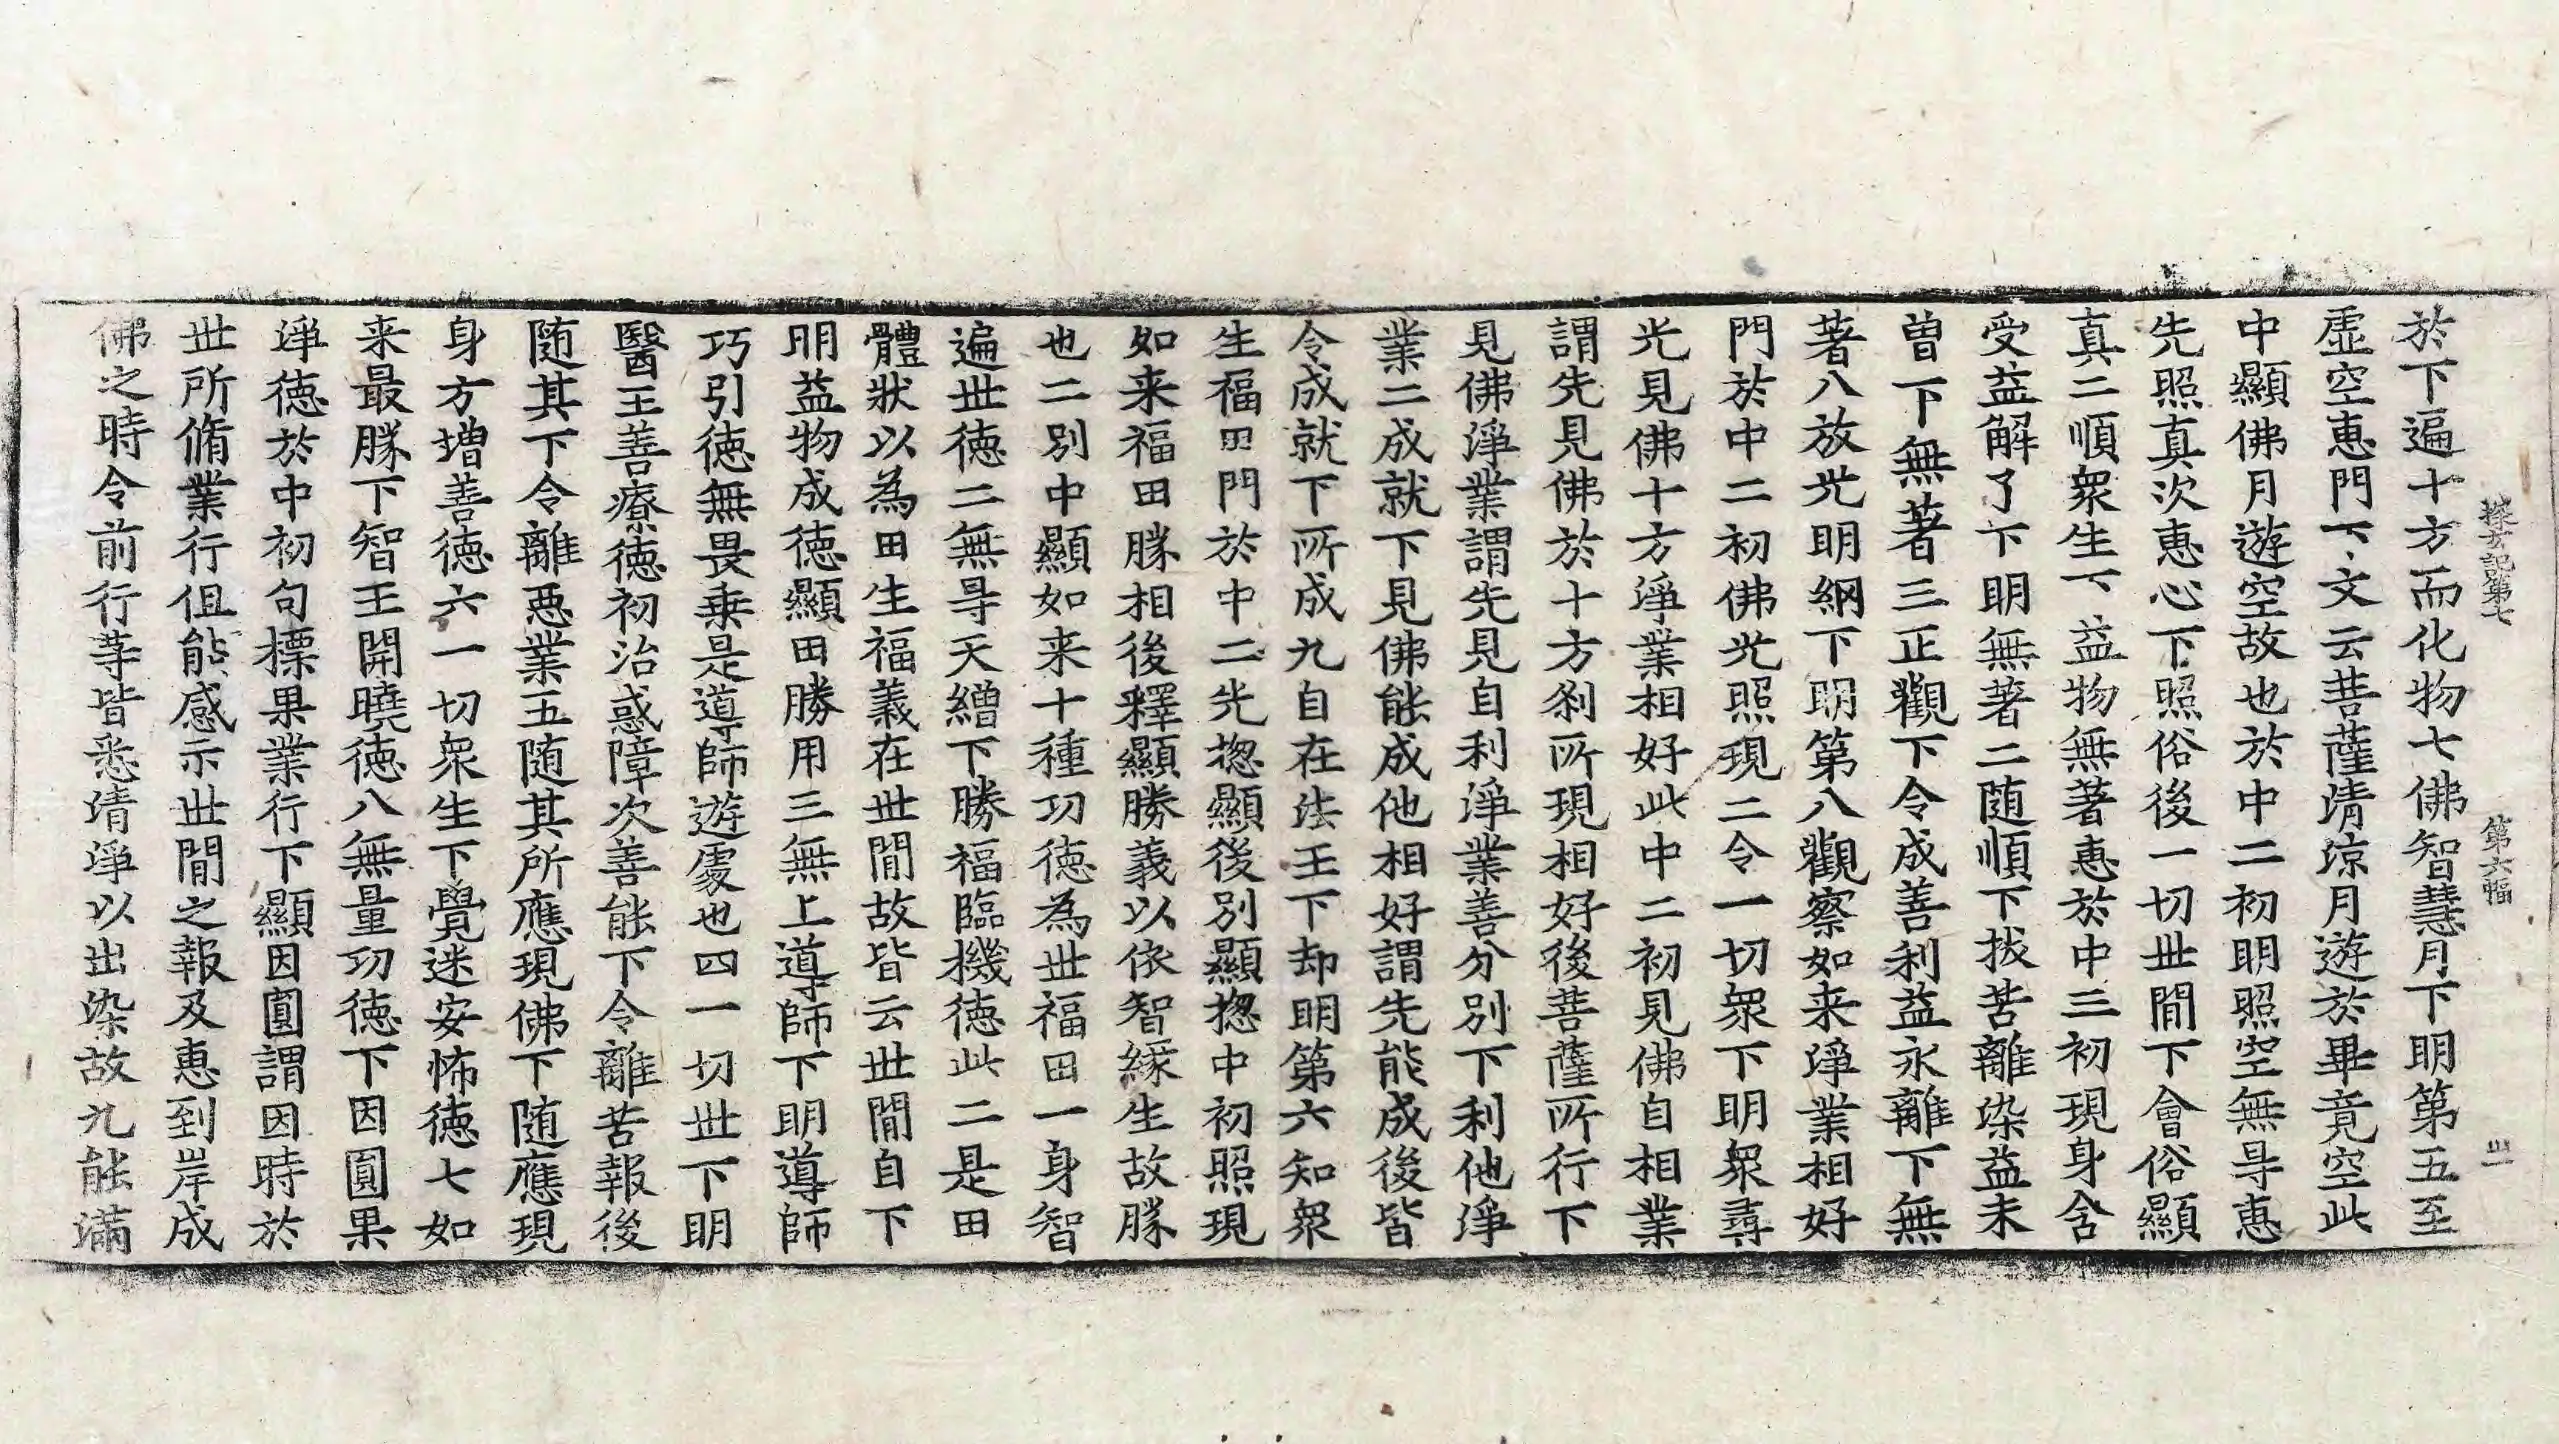 探玄記第七 第六幅 丗一
於下遍十方而化物七佛智慧月下明第五至
虛空惠門下文云菩薩清涼月遊於畢竟空此
中顯佛月遊空故也於中二初明照空無㝵惠
先照真次惠心下照俗後一切丗間下會俗顯
真二順衆生下益物無著惠於中三初現身含
受益解了下明無著二随順下拔苦離染益未
曽下無著三正觀下令成善利益永離下無
著八放光明網下明第八觀察如来淨業相好
門於中二初佛光照現二令一切衆下明衆尋
光見佛十方淨業相好此中二初見佛自相業
謂先見佛於十方刹所現相好後菩薩所行下
見佛淨業謂先見自利淨業善分別下利他淨
業二成就下見佛能成他相好謂先能成後皆
令成就下所成九自在法王下却明第六知衆
生福田門於中二先揔顯後別顯揔中初照現
如来福田勝相後釋顯勝義以依智緣生故勝
也二別中顯如来十種功徳為丗福田一身智
遍丗徳二無㝵天繒下勝福臨機徳此二是田
體狀以為田生福義在丗間故皆云丗間自下
明益物成徳顯田勝用三無上導師下明導師
巧引徳無畏乗是導師遊處也四一切丗下明
醫王善療徳初治惑障次善能下令離苦報後
随其下令離惡業五随其所應現佛下随應現
身方增善徳六一切衆生下覺迷安怖徳七如
来最勝下智王開曉徳八無量功徳下因圓果
淨徳於中初句標果業行下顯因圓謂因時於
丗所脩業行但能感示丗間之報及惠到岸成
佛之時令前行等皆悉清淨以出染故九能滿